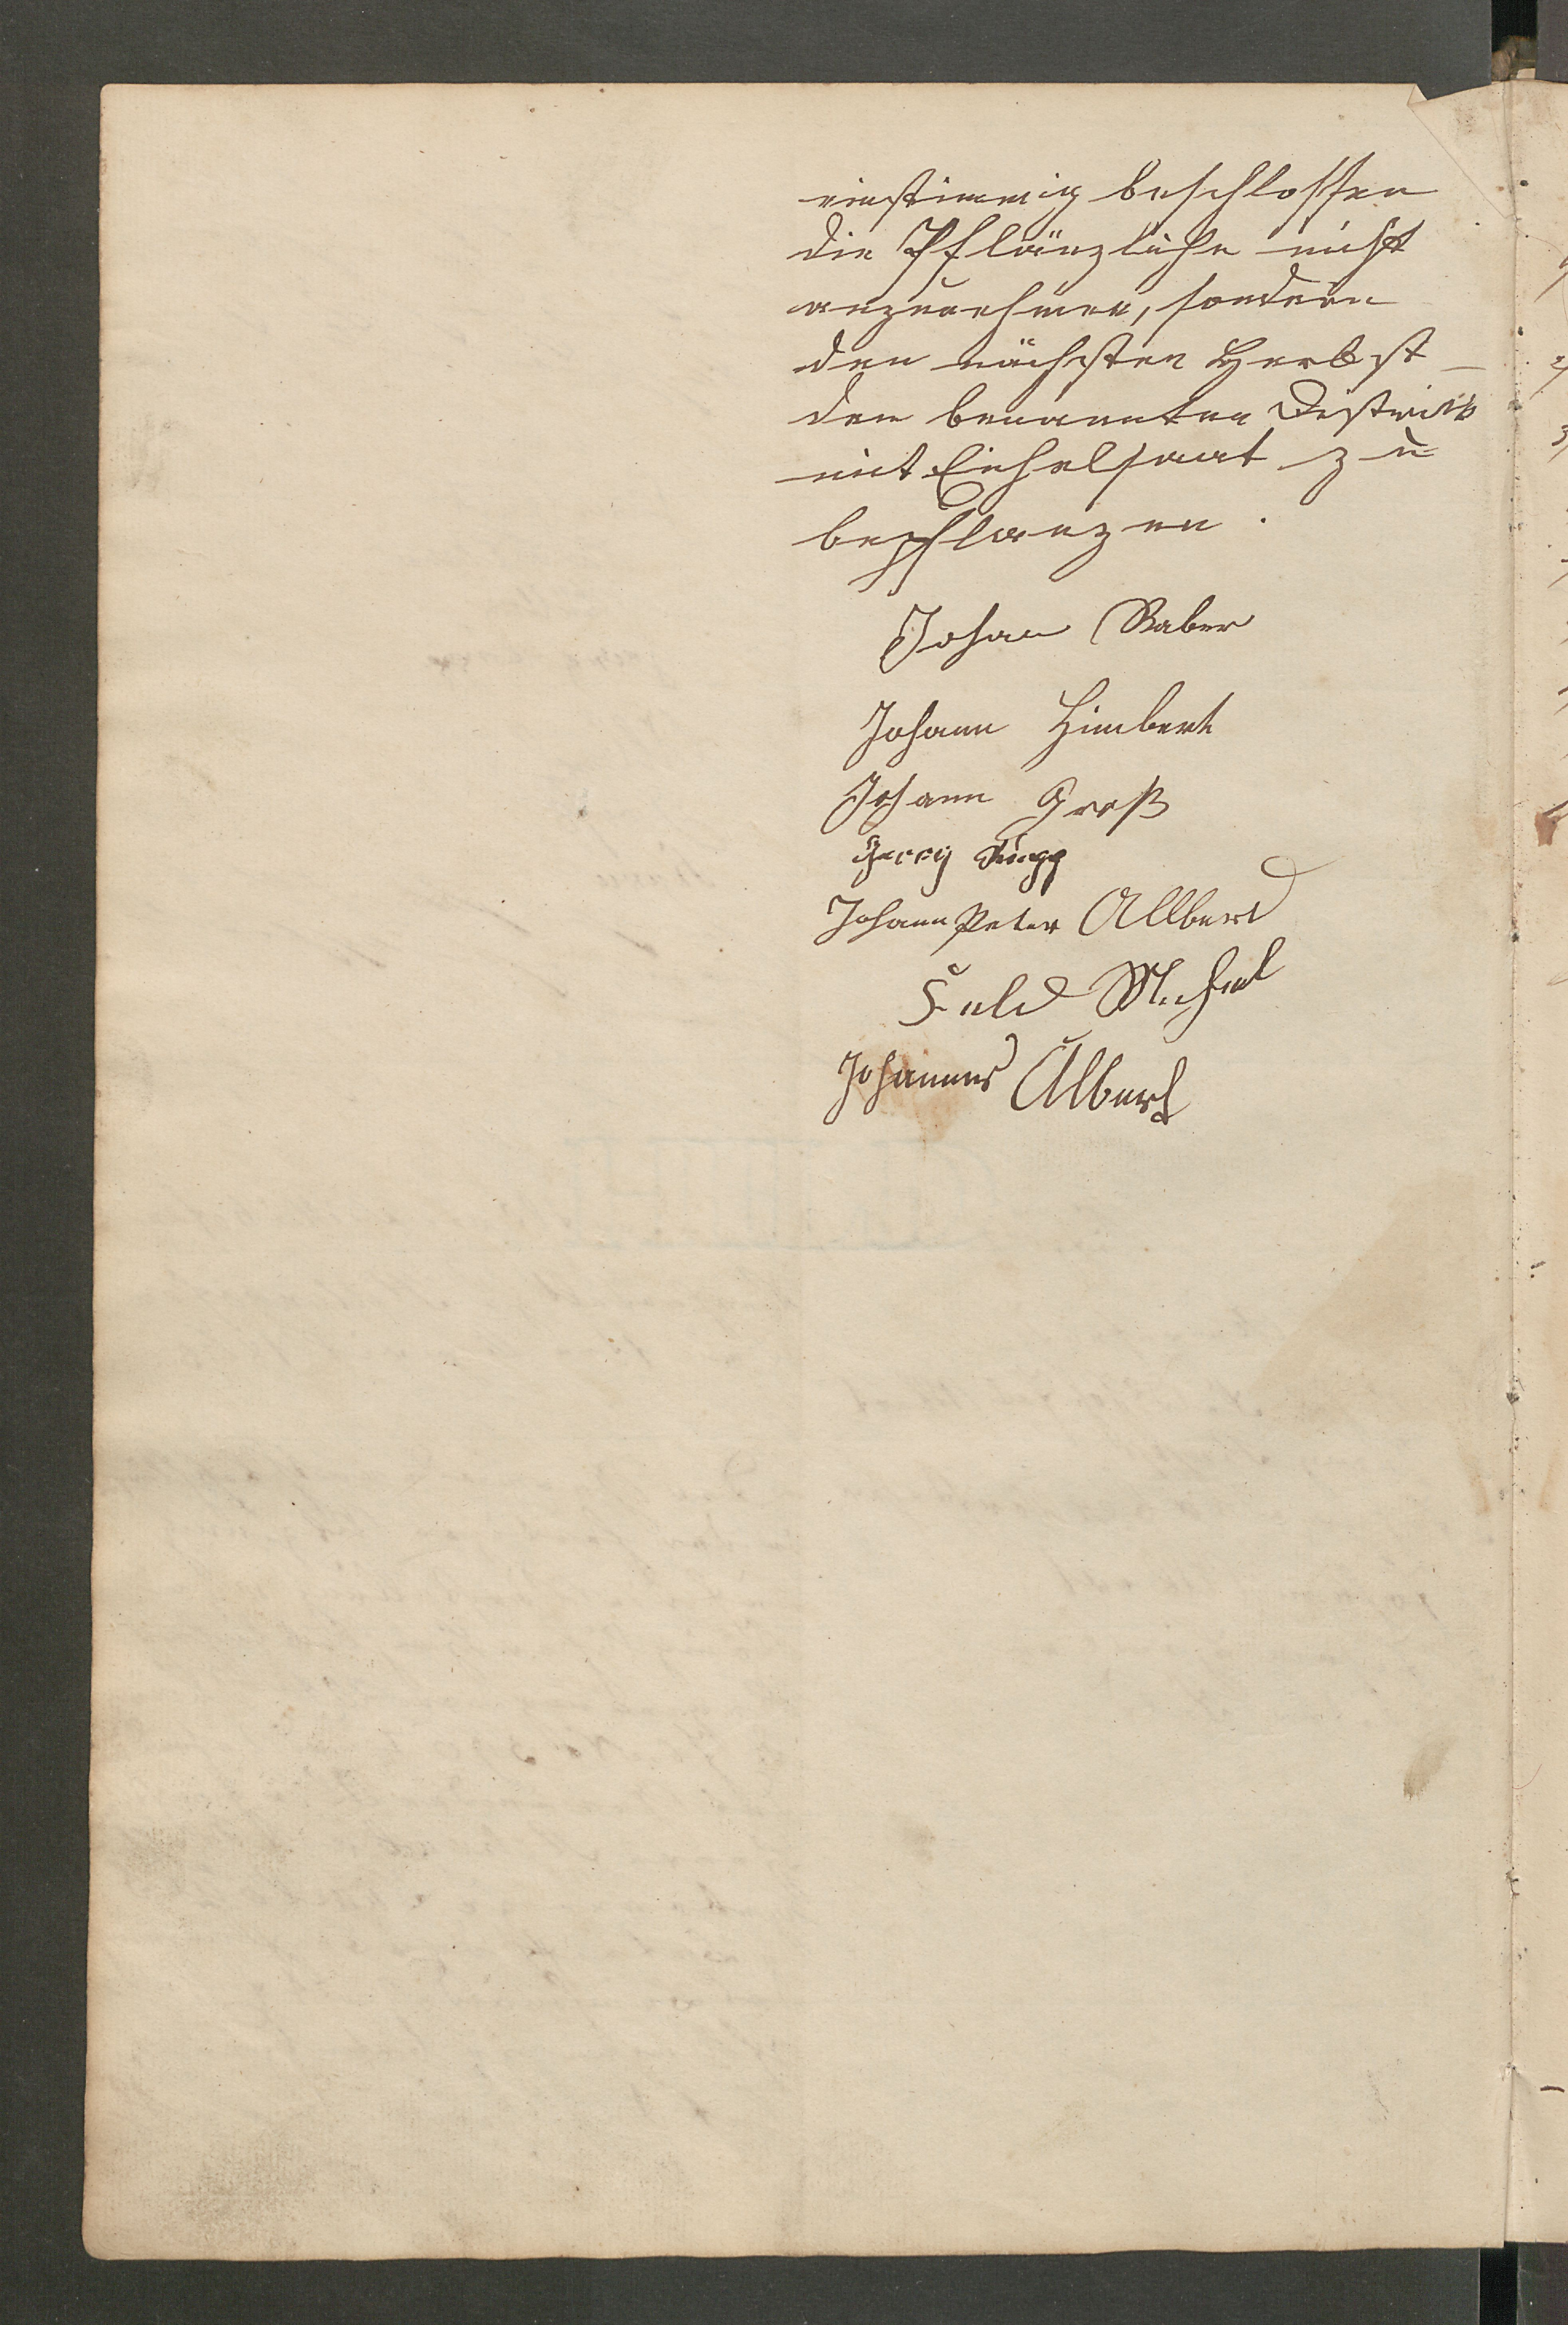 einstimmig beschlossen
die Pflänzliche nicht
anzunehmen, sondern
den nächsten Herbst
den benannten District
mit Eichelsaat zu
bepflanzen.
Johan Raber
Johann Himbert
Johann Groß
Georg
Johann Peter Allbert
Feld Michel
Johannes Albert